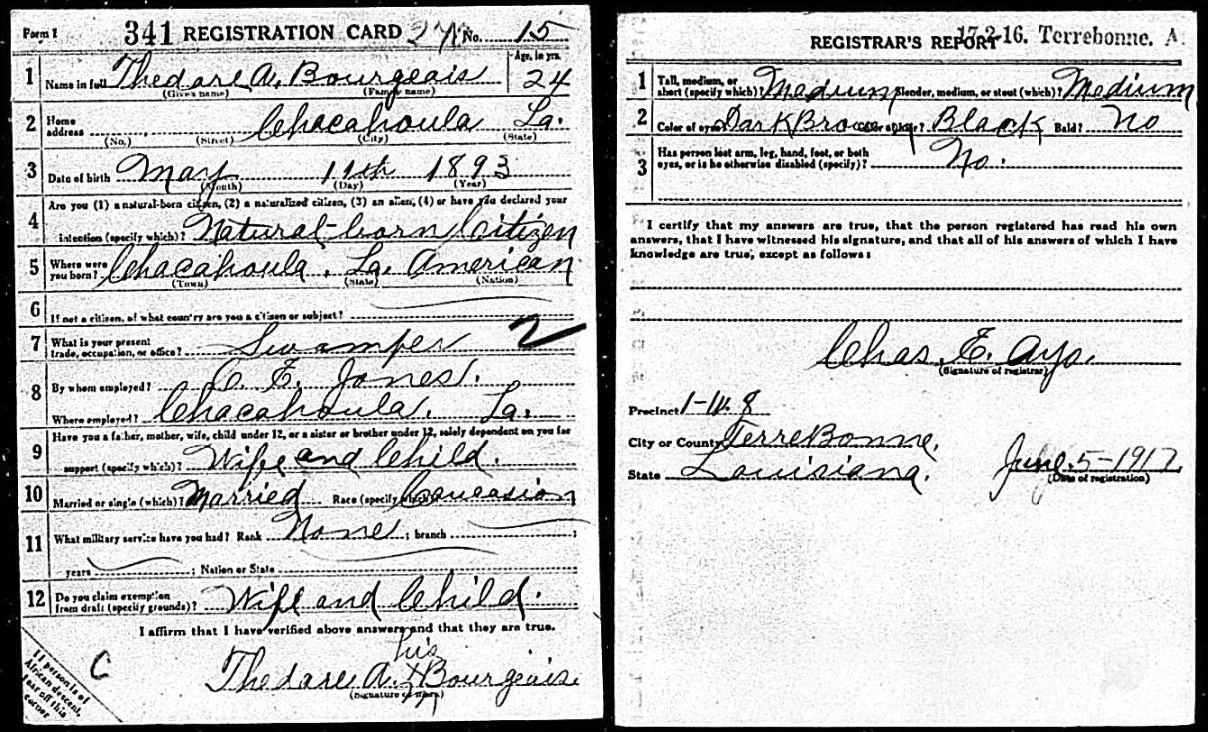 Form 1 341 REGISTRATION CARD No. 15
1 Name in full Thedare A. Bourgeais Age, in yrs. 24
(Given name) (Family name)
2 Home address Chacahoula La.
(No.) (Street) (City) (State)
3 Date of birth May 11th 1893
(Month) (Day) (Year)
4 Are you (1) a natural-born citizen, (2) a naturalized citizen, (3) an alien, (4) or have you declared your
intention (specify which)? Natural-born Citizen
5 Where were you born? Chacahoula, La. American
(Town) (State) (Nation)
6 If not a citizen, of what country are you a citizen or subject?
7 What is your present trade, occupation, or office? Swamper 2
8 By whom employed? C. E. Jones.
Where employed? Chacahoula, La.
9 Have you a father, mother, wife, child under 12, or a sister or brother under 12, solely dependent on you for
support (specify which)? Wife and Child.
10 Married or single (which)? Married Race (specify which)? Caucasion
11 What military service have you had? Rank None ; branch ;
years ; Nation or State
12 Do you claim exemption from draft (specify grounds)? Wife and Child.
I affirm that I have verified above answers and that they are true.
his
Thedare A. X Bourgeais
(Signature or mark)
mark
C
If person is of
African descent,
tear off this
corner
REGISTRAR'S REPORT 17-2-16. Terrebonne. A
1 Tall, medium, or short (specify which)? Medium Slender, medium, or stout (which)? Medium
2 Color of eyes? Dark Brown Color of hair? Black Bald? No
3 Has person lost arm, leg, hand, foot, or both
eyes, or is he otherwise disabled (specify)? No.
I certify that my answers are true, that the person registered has read his own
answers, that I have witnessed his signature, and that all of his answers of which I have
knowledge are true, except as follows:
Chas. E. Ayo.
(Signature of registrar)
Precinct 1-W. 8
City or County TerreBonne.
State Louisiana. June. 5-1917
(Date of registration)